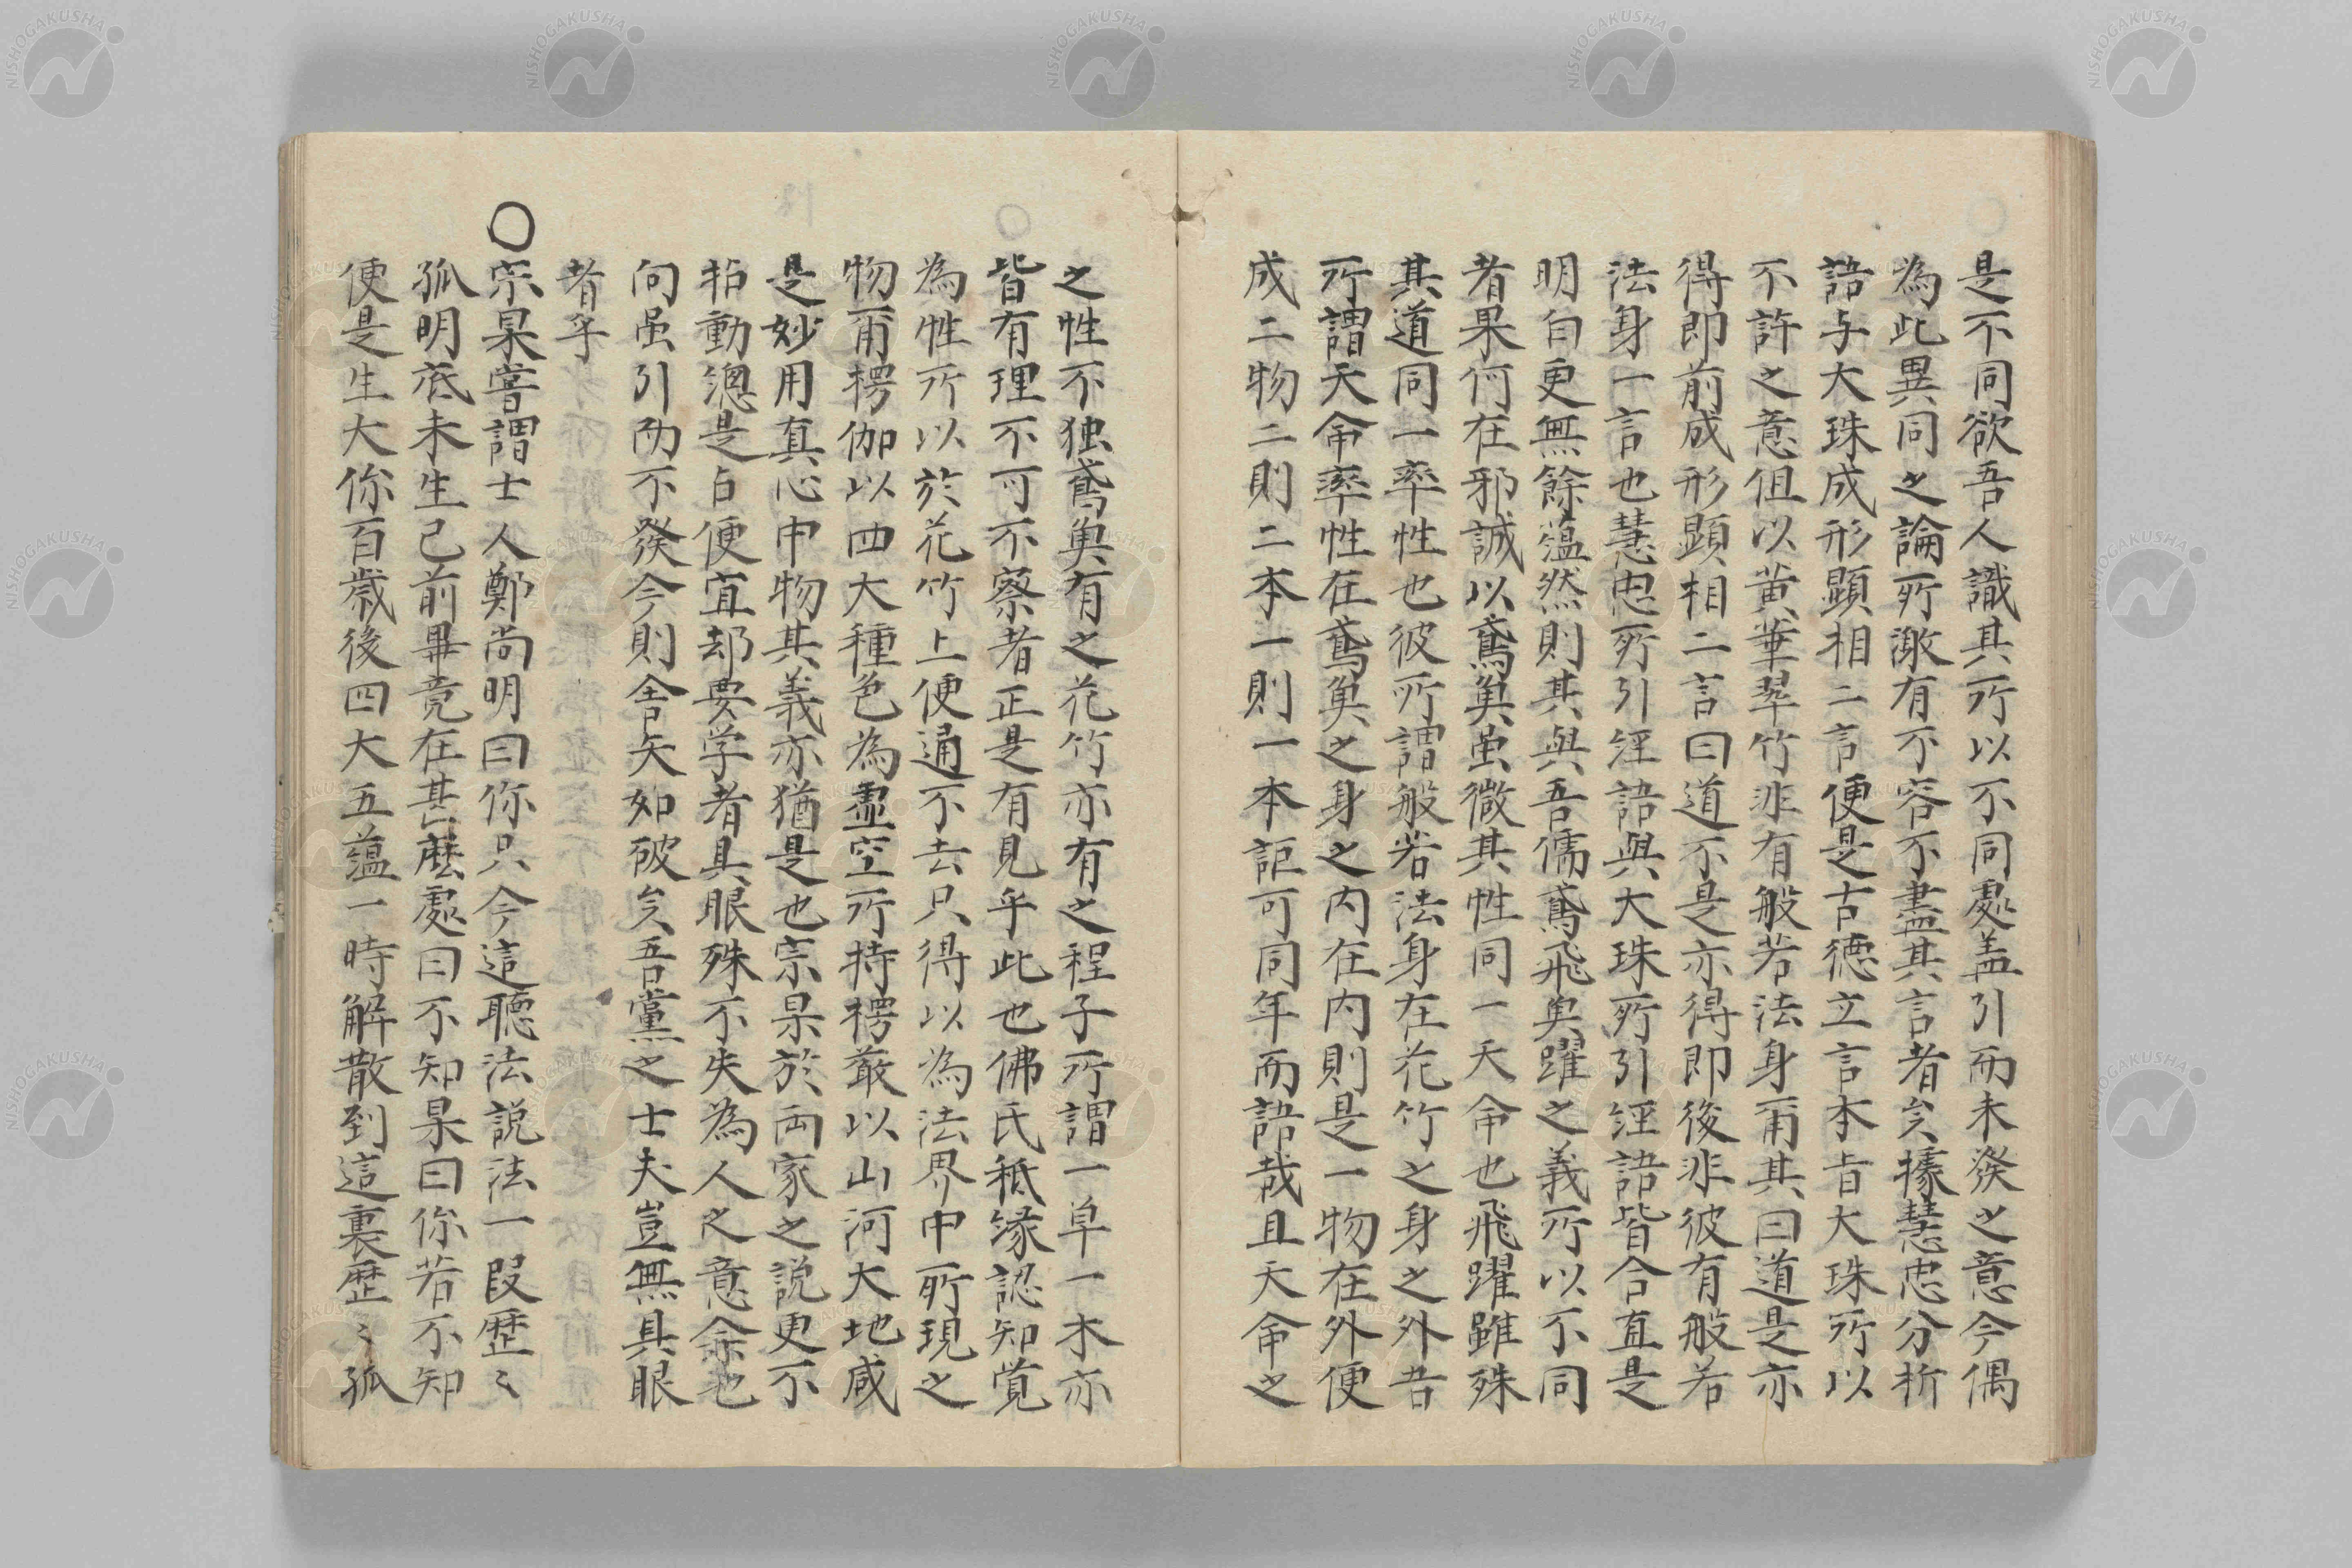 是不同欲吾人識其所以不同處盖引而未發之意今偶
為此異同之論所激有不容不盡其言者矣據慧忠分析
語与大珠成形顕相二言便是古德立言本旨大珠所以
不許之意但以黄華翠竹非有般若法身爾其曰道是亦
得即前成形顕相二言曰道不是亦得即後非彼有般若
法身一言也慧忠所引経語與大珠所引経語皆合直是
明白更無餘蕴然則其與吾儒鳶飛奥躍之義所以不同
者果何在邪誠以鳶奥虽微其性同一天命也飛躍雖殊
其道同一率性也彼所謂般若法身在花竹之身之外吾
所謂天命率性在鳶奥之身之内在内則是一物在外便
成二物二則二本一則一本詎可同年而語哉且天命之
之性不独鳶奥有之花竹亦有之程子所謂一草一木亦
皆有理不可不察者正是有見乎此也佛氏秪縁認知覚
為性所以於花竹上便通不去只得以為法界中所現之
物爾楞伽以四大種色為虚空所持楞厳以山河大地咸
是妙用真心中物其義亦猶是也宗杲於両家之説更不
拈動總是占便宜却要学者具眼殊不失為人之意余也
向虽引而不發今則舍矢如破矣吾黨之士夫豈無具眼
者乎
〇宗杲嘗謂士人鄭尚明曰你只今這聴法説法一段歴〻
孤明底未生已前畢竟在甚麽處曰不知杲曰你若不知
便是生大你百歳後四大五蕴一時解散到這裏歴〻孤